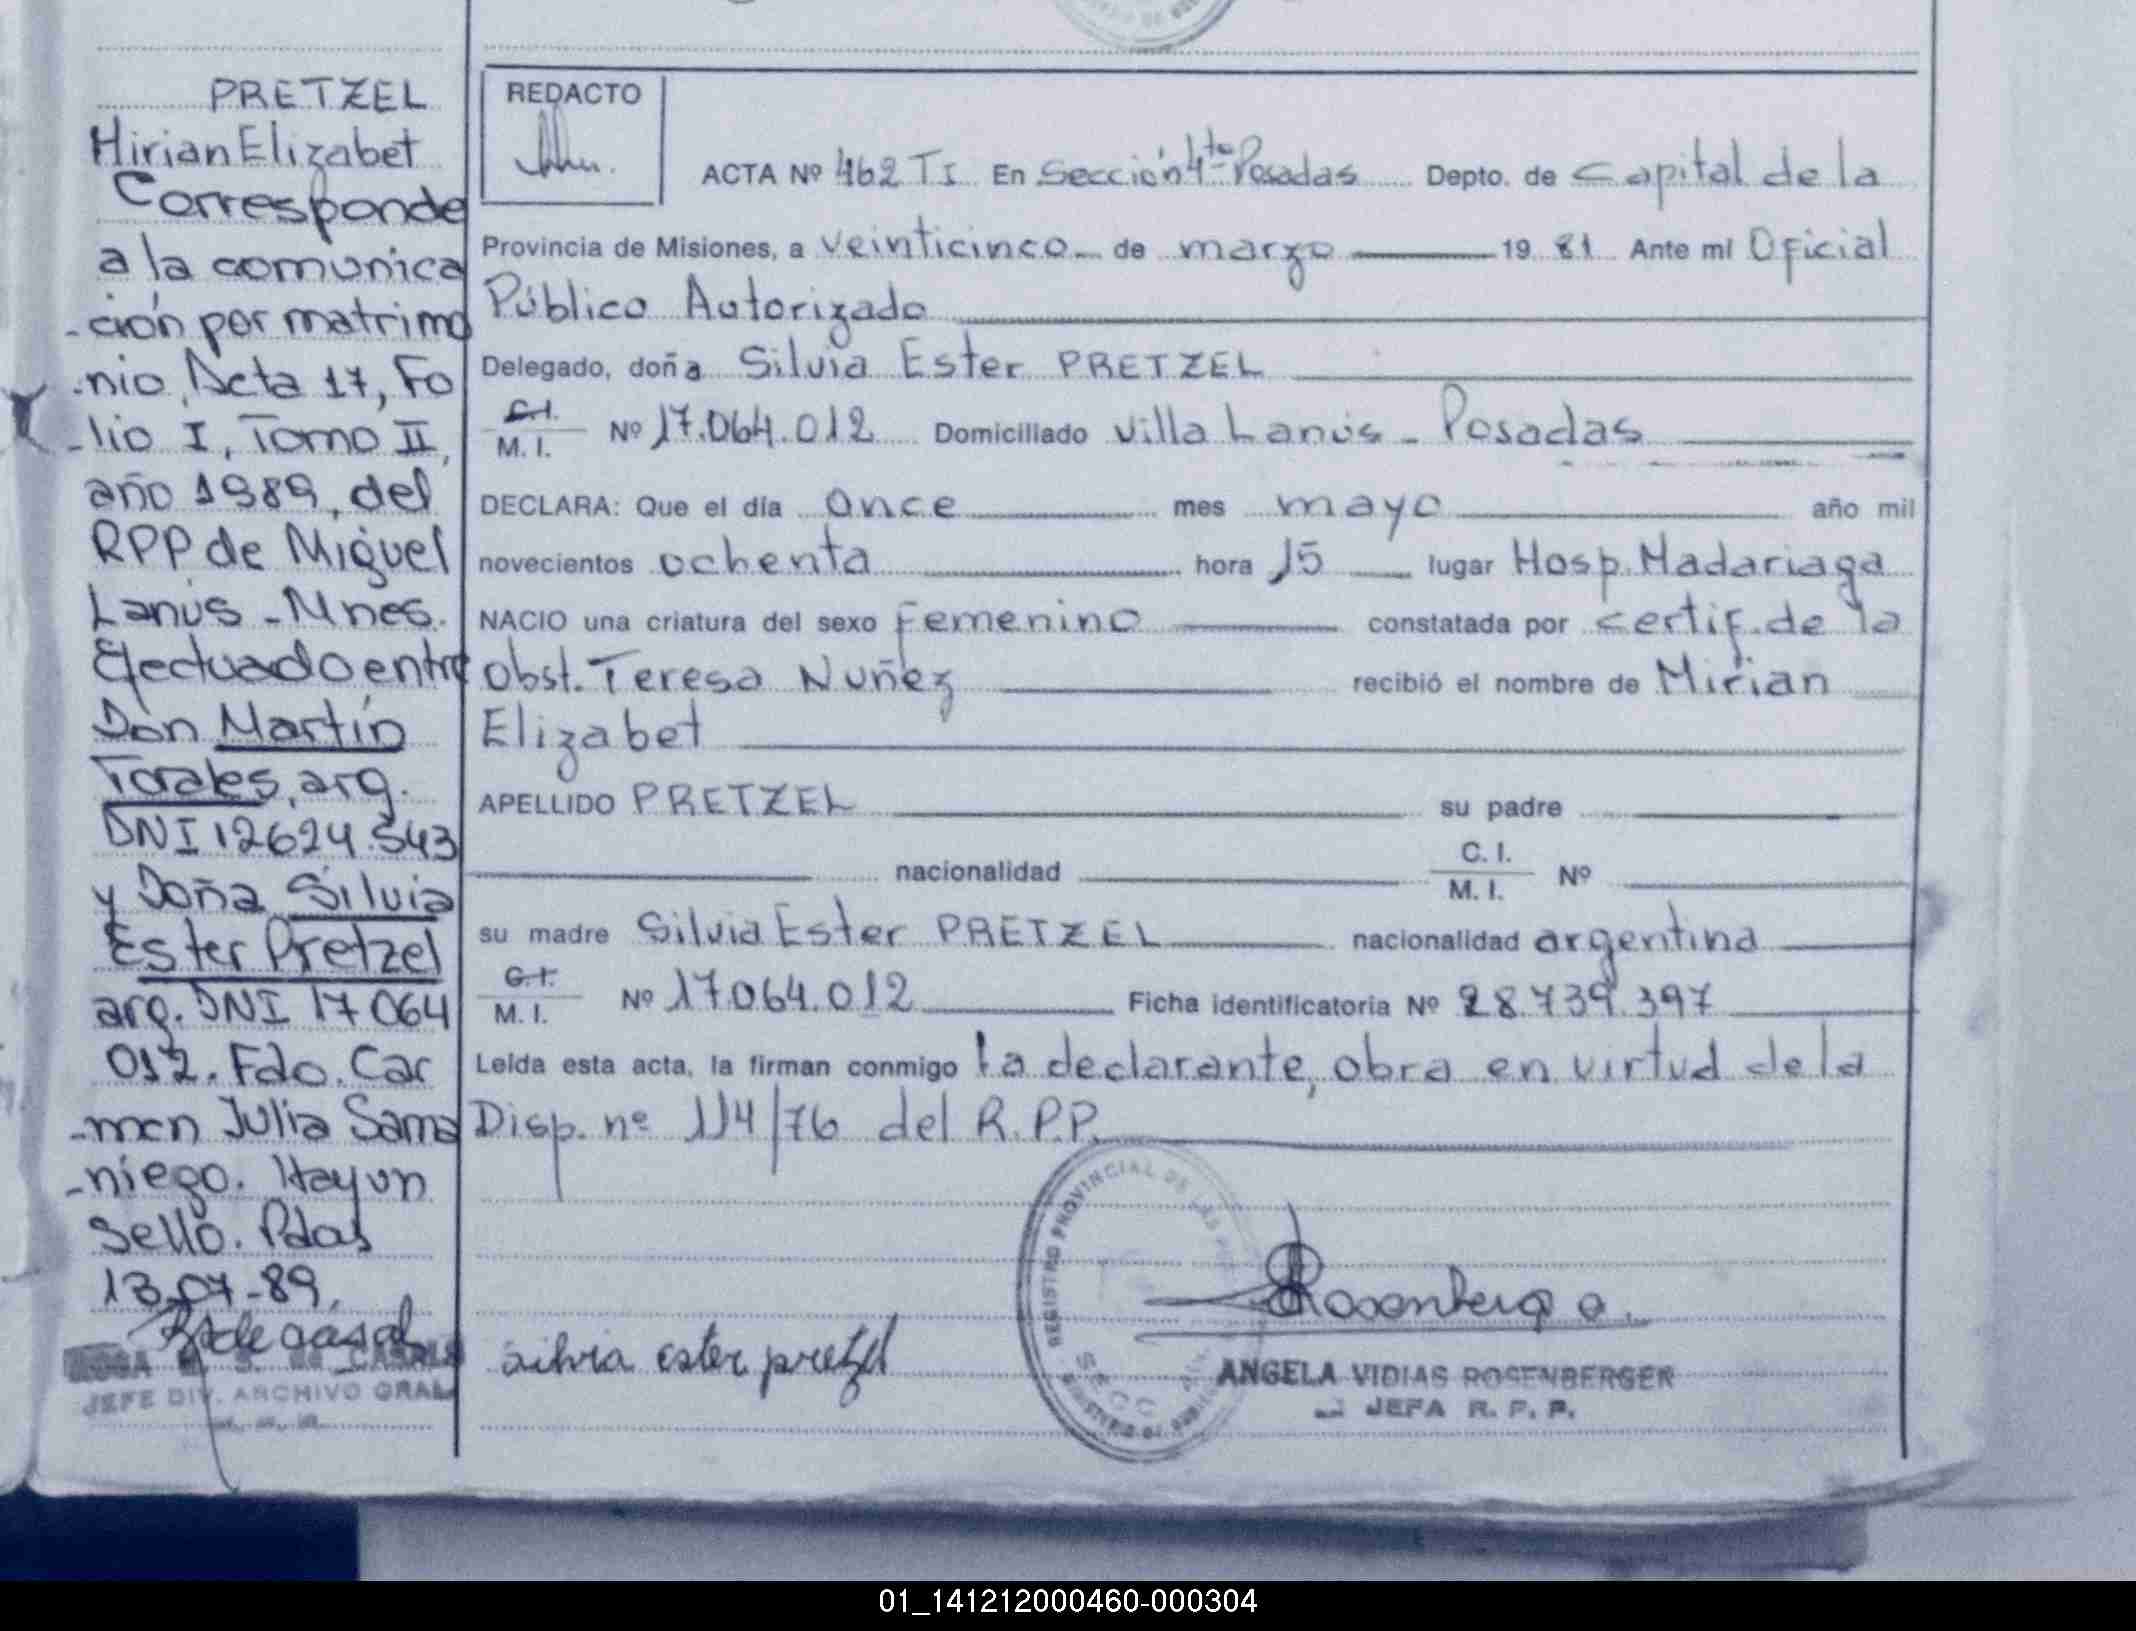 PRETZEL
Mirian Elizabet
Corresponde
a la comunica
-ción por matrimo
-nio, Acta 17, Fo
-lio I, Tomo II,
año 1989, del
RPP de Miguel
Lanús - Mnes.
Efectuado entre
Don Martín
Torales, arg.
DNI 12624.543
y Doña Silvia
Ester Pretzel
arg. DNI 17 064
012. Fdo. Car
-men Julia Sama
-niego. Hay un
Sello. Pdas
13-07-89.
JEFE DIV. ARCHIVO GRAL.
REDACTO
ACTA Nº 462 TI En Sección 4ta Posadas Depto. de Capital de la
Provincia de Misiones, a veinticinco de marzo 19 81 Ante mí Oficial
Público Autorizado
Delegado, doña Silvia Ester PRETZEL
C.I.
M.I. Nº 17.064.012 Domiciliado Villa Lanús - Posadas
DECLARA: Que el día once mes mayo año mil
novecientos ochenta hora 15 lugar Hosp. Madariaga
NACIO una criatura del sexo femenino constatada por certif. de la
Obst. Teresa Nuñez recibió el nombre de Mirian
Elizabet
APELLIDO PRETZEL su padre
nacionalidad C.I. M.I. Nº
su madre Silvia Ester PRETZEL nacionalidad argentina
C.I.
M.I. Nº 17.064.012 Ficha identificatoria Nº 28.739.397
Leída esta acta, la firman conmigo la declarante, obra en virtud de la
Disp. nº 114/76 del R.P.P.
REGISTRO PROVINCIAL DE LAS
SECC
silvia ester pretzel
Rosenberg a.
ANGELA VIDIAS ROSENBERGER
JEFA R. P. P.
01_141212000460-000304